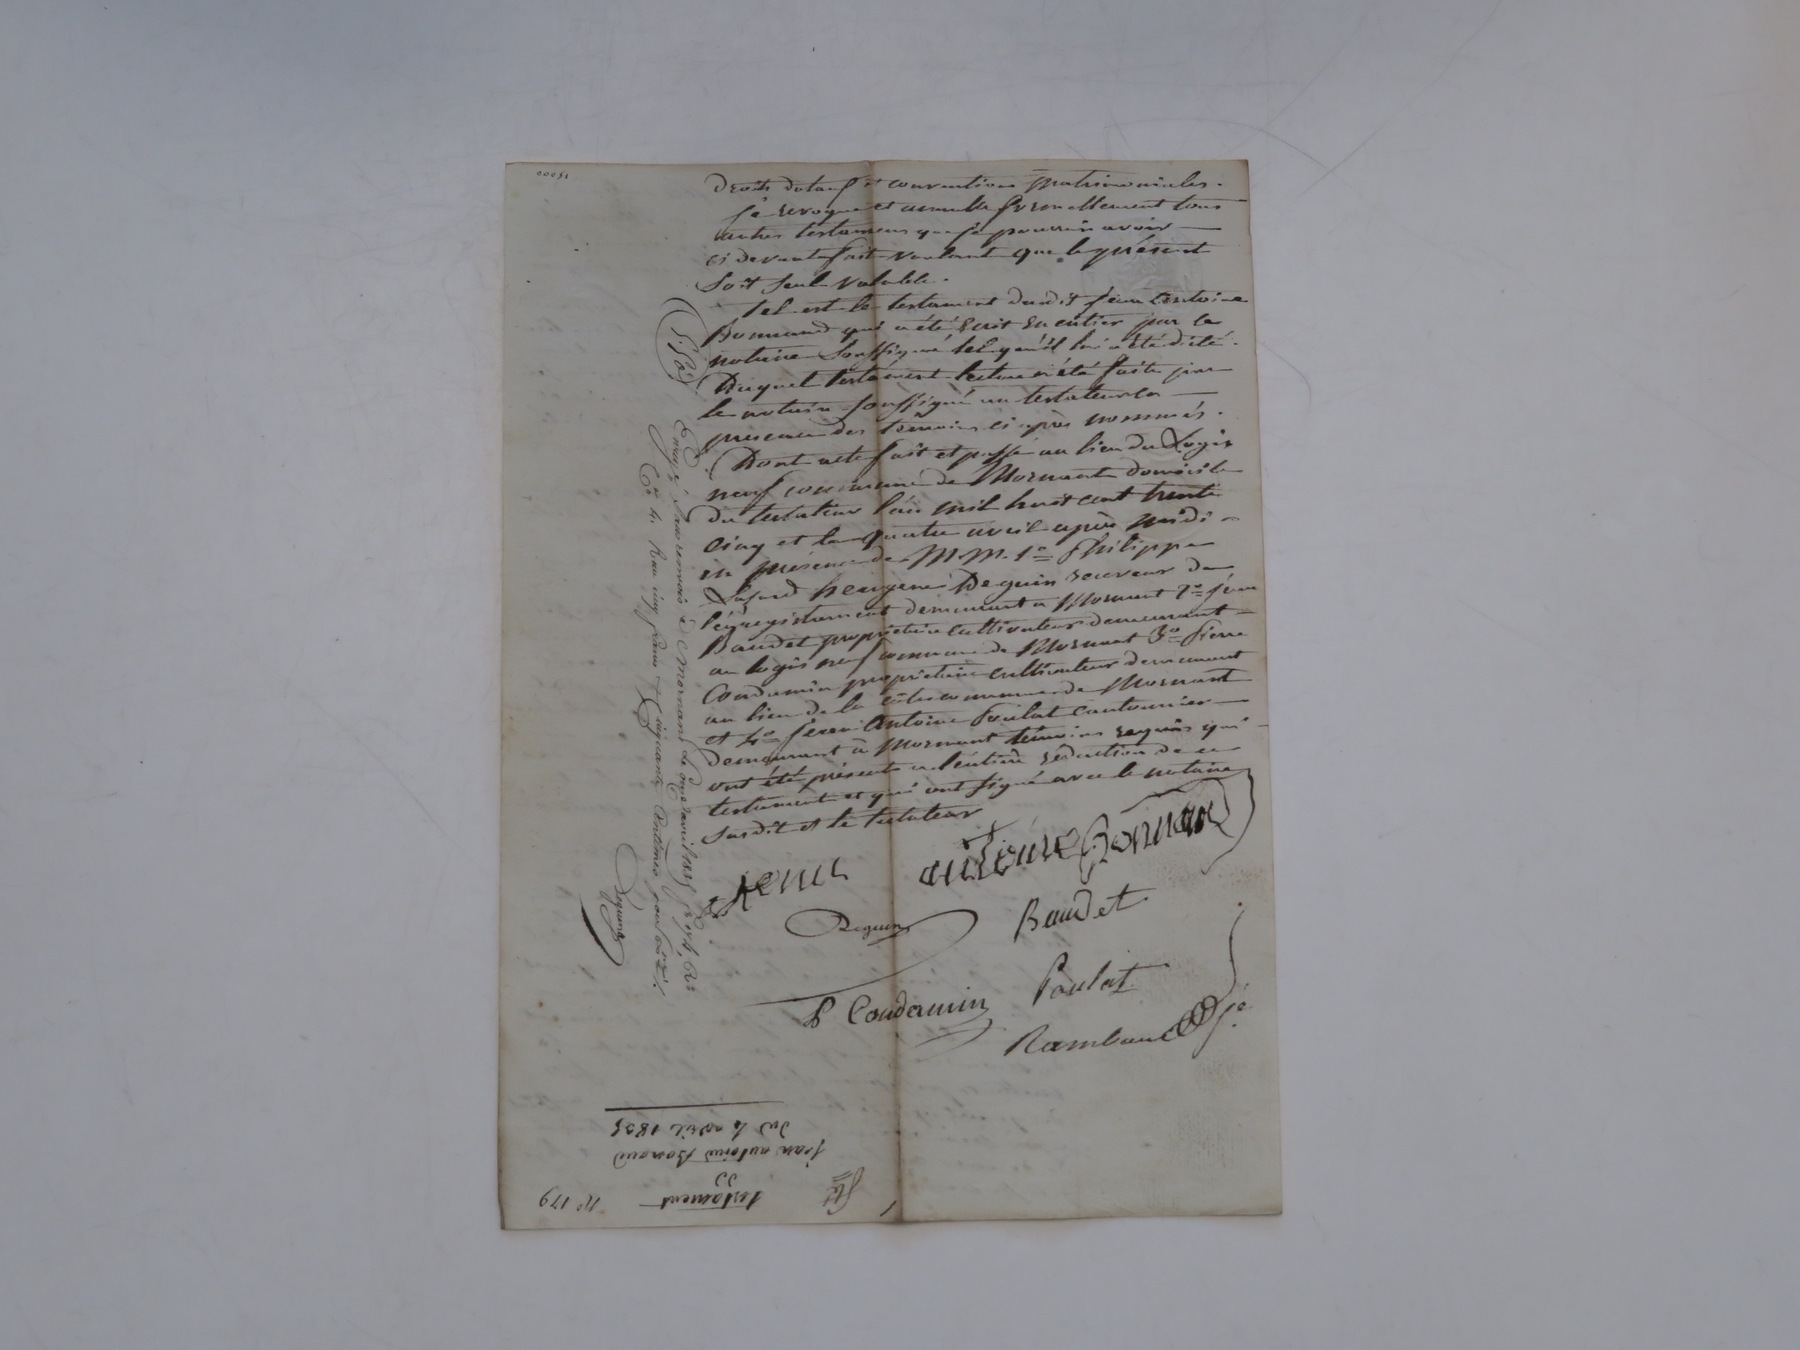 droits dotaux et conventions matrimoniales.
Je revoque et annulle formellement tous
autres testamens que je pourrais avoir
ci devant fait voulant que le présent
soit seul valable.
Tel est le testament dudit Jean Antoine
Bonnand qui a été écrit en entier par le
notaire soussigné tel qu'il lui a été dicté.
Duquel testament lecture a été faite par
le notaire soussigné au testateur en
presence des témoins ci après nommés.
Dont acte fait et passé au lieu du Logis
neuf commune de Mornant domicile
du testateur l'an mil huit cent trente
cinq et le quatre avril après midi
en présence de MM. 1º Philippe
Deguin receveur de
l'enregistrement demeurant à Mornant 2º Jean
Baudet propriétaire cultivateur demeurant
au logis neuf commune de Mornant 3º Pierre
Condamin propriétaire cultivateur demeurant
au lieu de la côte commune de Mornant
et 4º Jean Antoine Poulat cantonnier
demeurant à Mornant témoins requis qui
ont été présents à l'entière rédaction de ce
testament et qui ont signé avec le notaire
susdit et le testateur
antoine Bonnand
Deguin
Baudet
P Condamin
Poulat
Rambaud
Enregistré à Mornant le onze avril 1835
Reçu cinq francs cinquante centimes
Deguin
Nº 179
testament
jean antoine Bonand
du 4 avril 1835